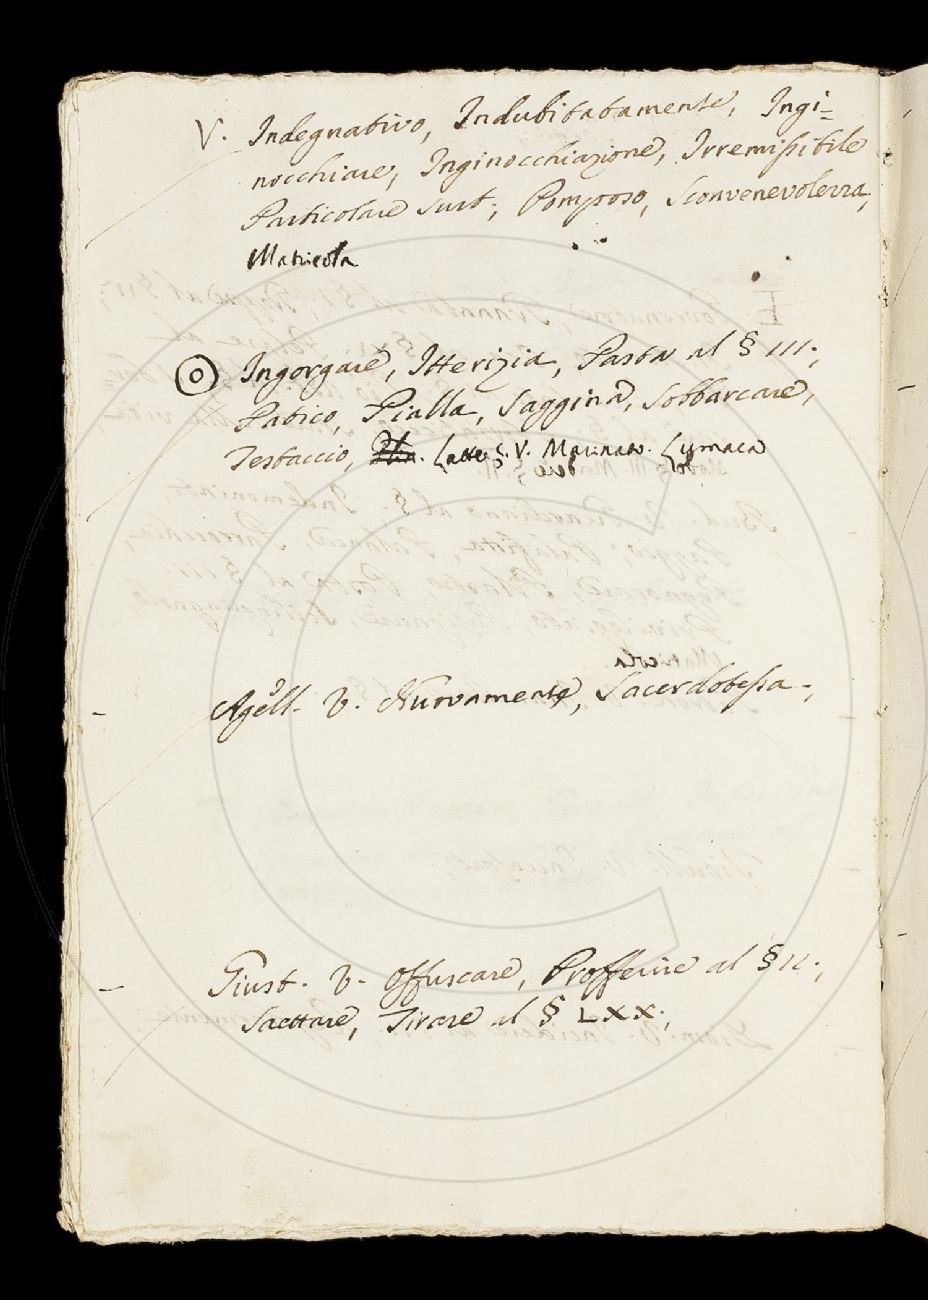 V. Indegnativo, Indubitatamente, Ingi=
nocchiare, Inginocchiazione, Irremissibile
Particolare Sust., Pomposo, Sconvenevolezza,
Matricola
Ingorgare, Itterizia, Pasta al § III.,
Patico, Pialla, Saggina, Sobbarcare,
Testaccio, Latte §. V. Maunat. Lumaca
Agell. V. Nuovamente, Sacerdotessa.,
Giust. V. Offuscare, Profferire al § II.,
Saettare, Tirare al § LXX.,